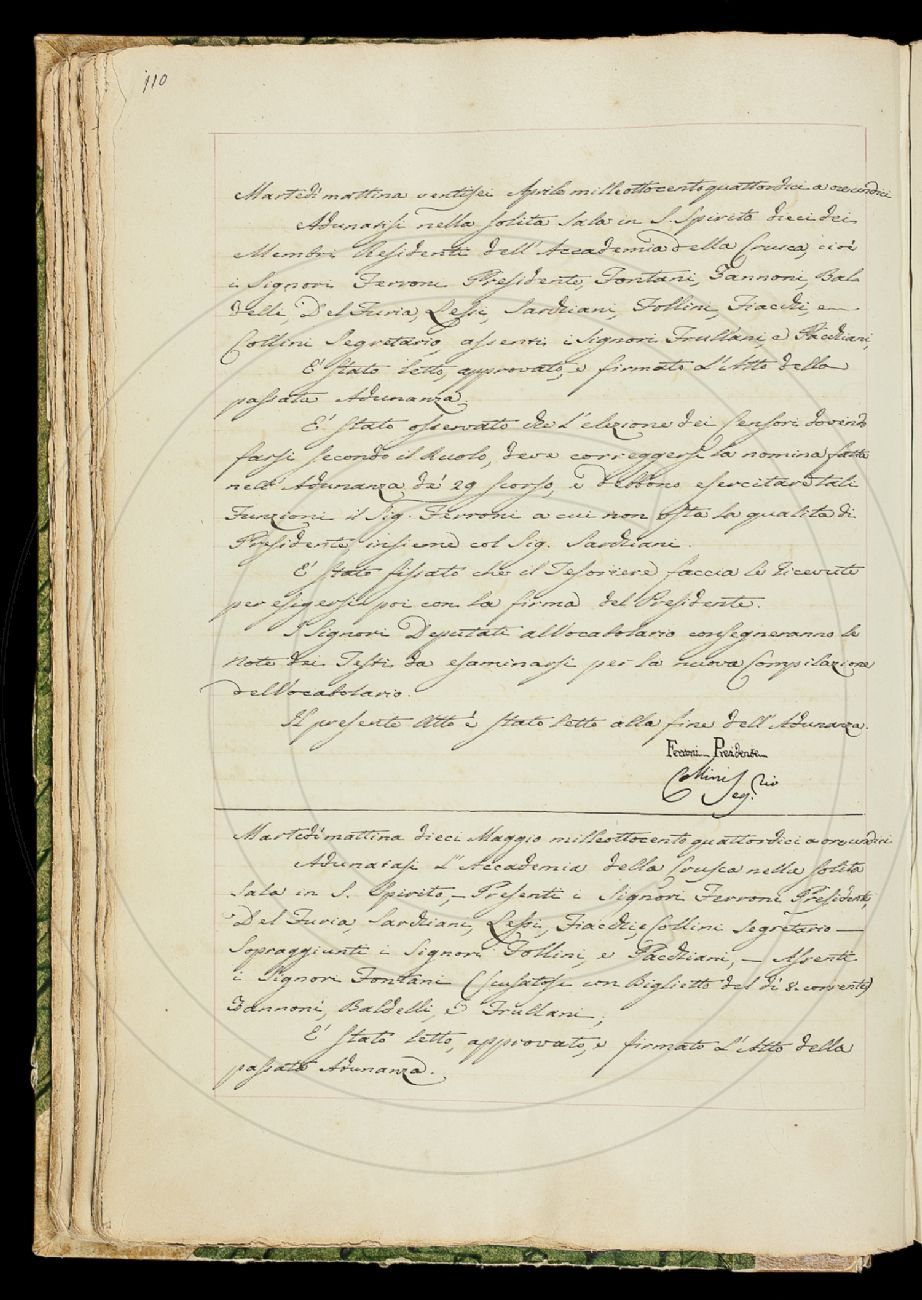 110
Martedì mattina ventisei Aprile milleottocentoquattordici a ore undici
Adunatisi nella solita Sala in S. Spirito dieci dei
Membri Residenti dell'Accademia della Crusca, cioè
i Signori Ferroni Presidente, Fontani, Zannoni, Bal
delli, Del Furia, Lessi, Sarchiani, Follini, Fiacchi, e
Collini Segretario, assenti i Signori Frullani, e Pacchiani,
E' stato letto, approvato, e firmato l'Atto della
passata Adunanza.
E' stato osservato che l'elezione dei Censori dovendo
farsi secondo il Ruolo, deve correggersi la nomina fatta
nell'Adunanza de' 29 scorso, e debbono esercitare tali
Funzioni il Sig. Ferroni a cui non osta la qualità di
Presidente insieme col Sig. Sarchiani.
E' stato fissato che il Tesoriere faccia le ricevute
per esigersi poi con la firma del Presidente.
I Signori Deputati al Vocabolario consegneranno le
Note dei Testi da esaminarsi per la nuova Compilazione
del Vocabolario.
Il presente Atto è stato letto alla fine dell'Adunanza.
Ferroni Presidente
Collini Seg.rio
Martedì mattina dieci Maggio milleottocentoquattordici a ore undici
Adunatasi l'Accademia della Crusca nella solita
Sala in S. Spirito, - Presenti i Signori Ferroni Presidente,
Del Furia, Sarchiani, Lessi, Fiacchi, e Collini Segretario —
Sopraggiunti i Signori Follini, e Pacchiani, - Assenti
i Signori Fontani (scusatosi con Biglietto del dì 8. corrente)
Zannoni, Baldelli, e Frullani;
E' stato letto, approvato, e firmato l'Atto della
passata Adunanza.